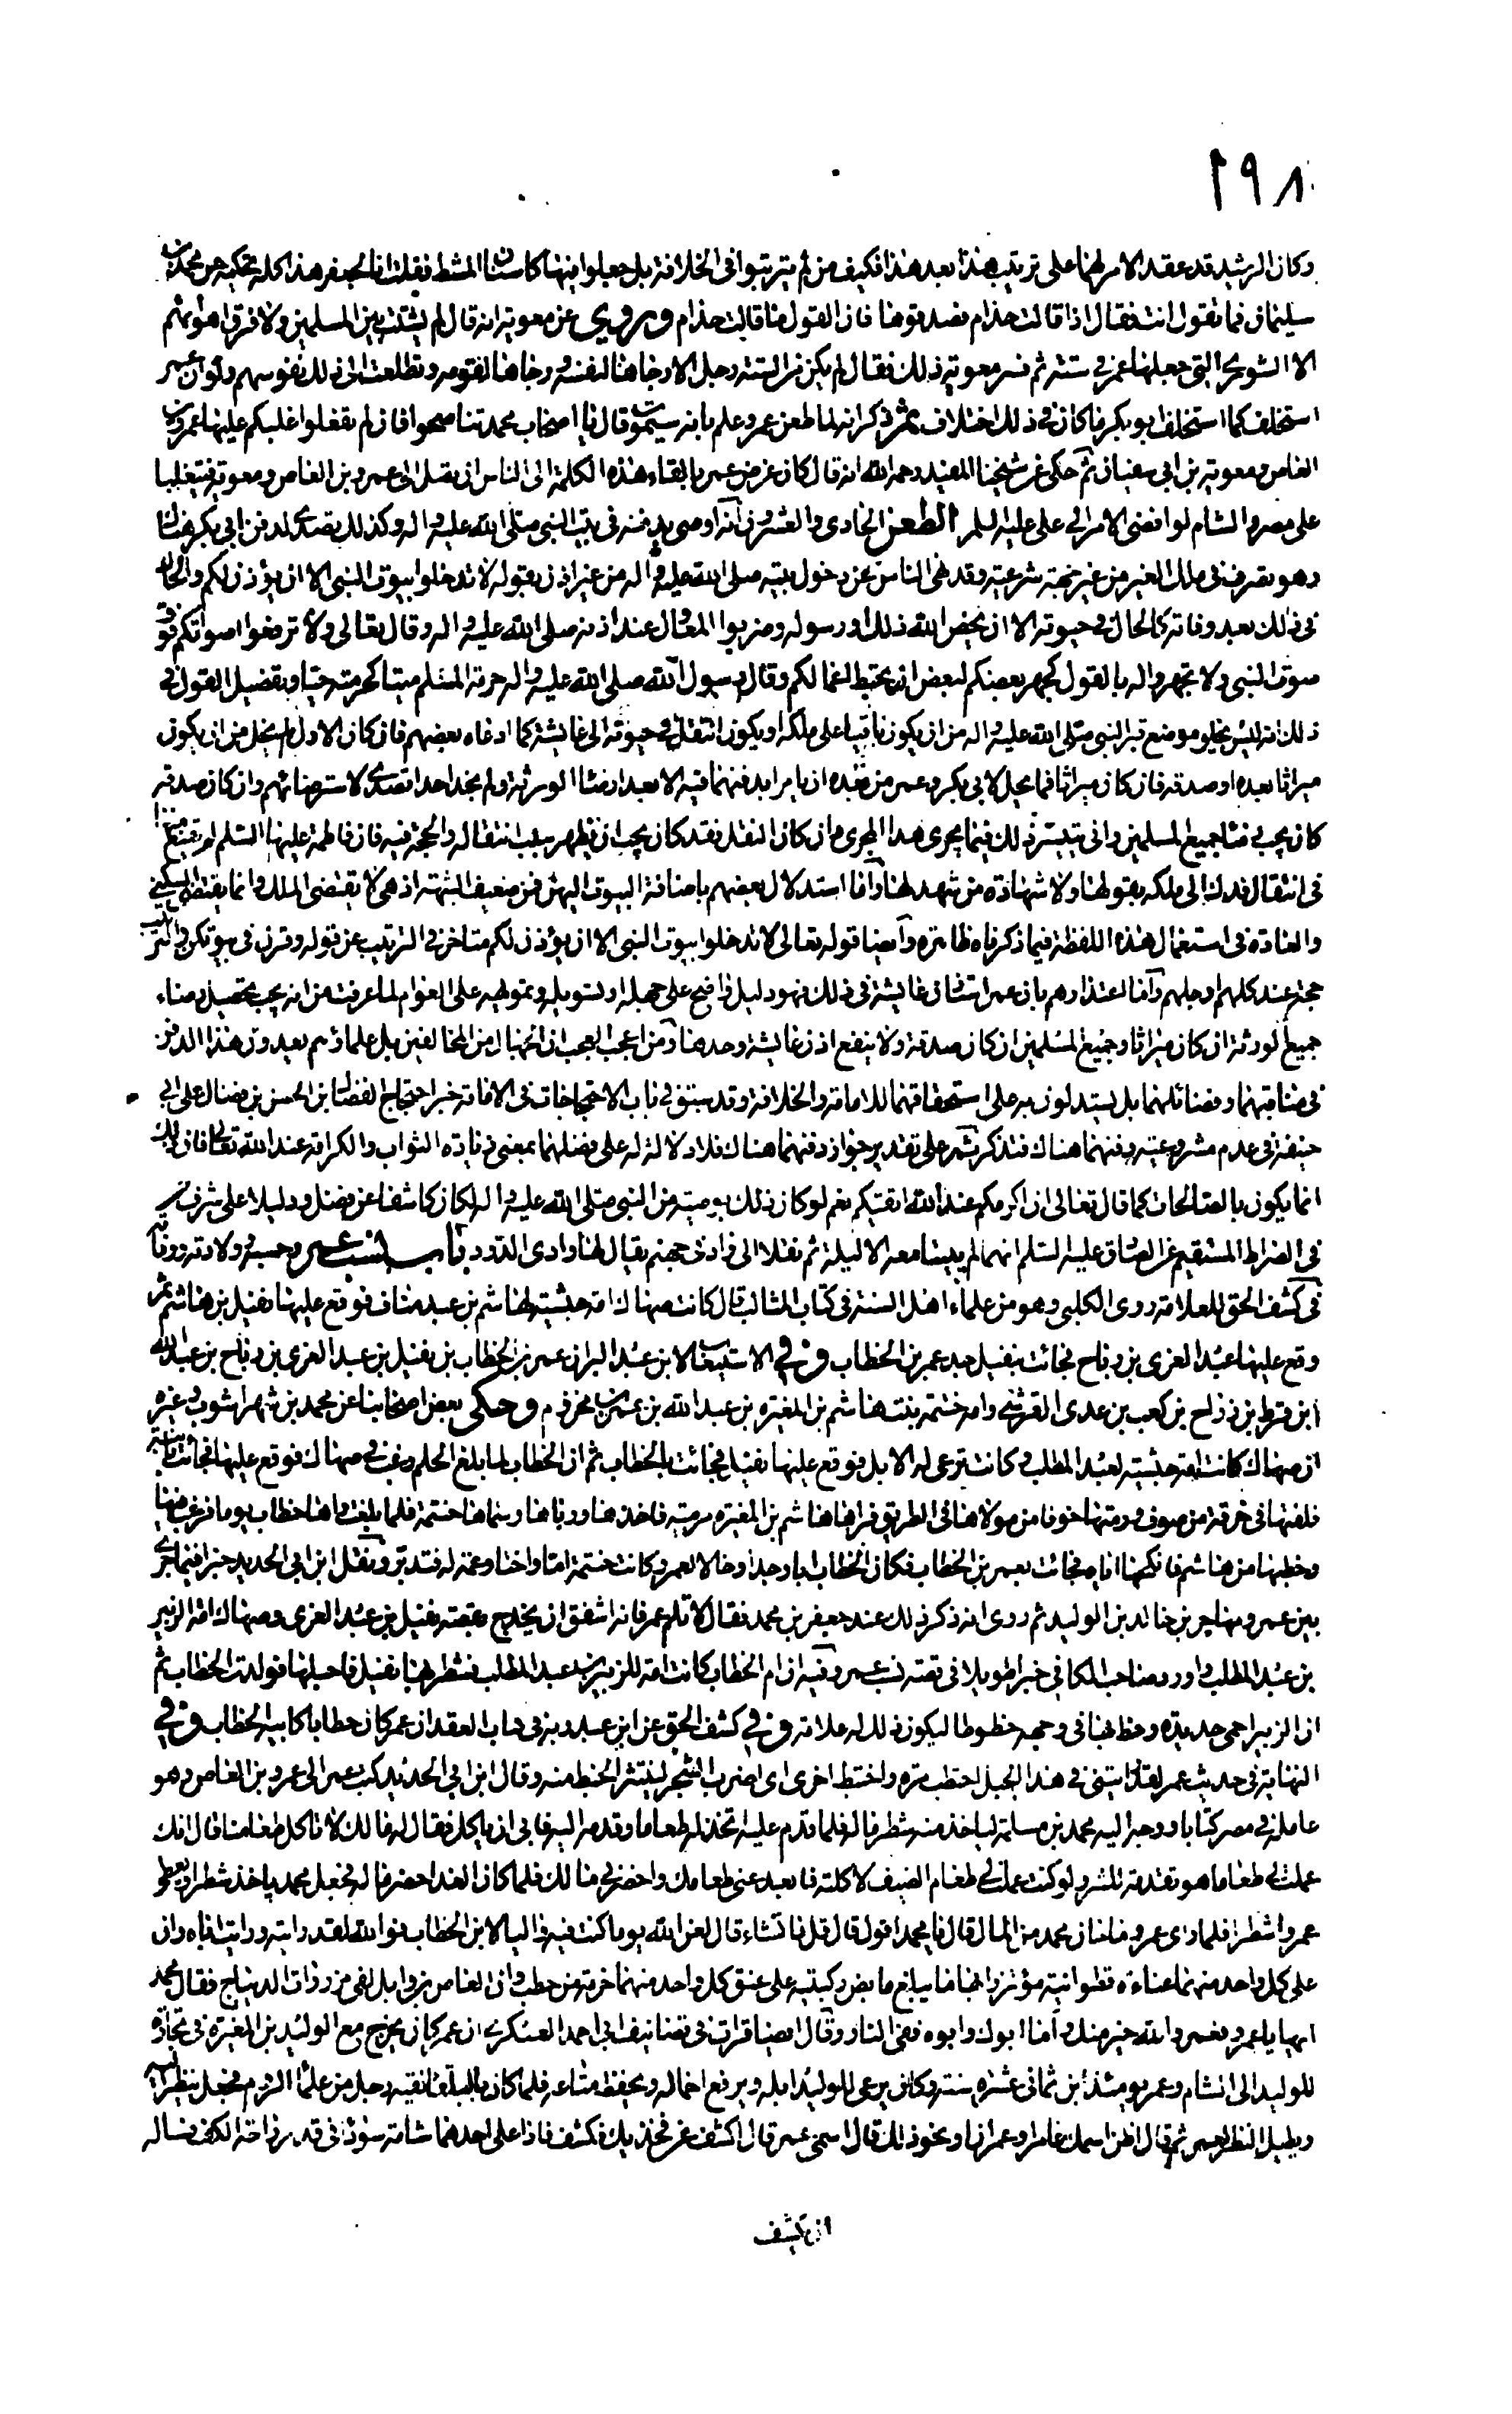 ٢٩٨
وكان الرشيد قد عقد الامر لهما على ترتيب هذا بعد هذا فكيف من لم يترتبوا في الخلافة بل جعلوا فيها كاسنان المشط فقلت انا لجعفر هذا كله تحكيه عن محمد بن
سليمان فما تقول انت فقال اذا قالت حذام فصدقوها فان القول ما قالت حذام وروى عن معوية انه قال لم يشتت بين المسلمين ولا فرق اهوائهم
الا الشورى التي جعلها عمر في ستة ثم فسر معوية ذلك فقال لم يكن من الستة رجل الا رجاها لنفسه ورجاها لقومه وتطلعت الى ذلك نفوسهم ولو ان عمر
استخلف كما استخلف ابو بكر ما كان في ذلك اختلاف ثم ذكر انه لما طعن عمر وعلم بانه سيموت قال يا اصحاب محمد تناصحوا فان لم تفعلوا غلبكم عليها عمرو بن
العاص ومعوية بن ابي سفيان ثم حكى عن شيخنا المفيد رحمه الله انه قال كان غرض عمر بالقاء هذه الكلمة الى الناس ان تصل الى عمرو بن العاص ومعوية فيتغلبا
على مصر والشام لو افضى الامر الى على عليه السلم الطعن الحادى والعشرون انه اوصى بدفنه في بيت النبي صلى الله عليه واله وكذلك تصدى لدفن ابي بكر هناك
وهو تصرف في ملك الغير من غير جهة شرعية وقد نهى الناس عن دخول بيته صلى الله عليه واله من غير اذن بقوله لا تدخلوا بيوت النبي الا ان يؤذن لكم والحال
في ذلك بعد وفاته كالحال في حيوته الا ان يخص الله ذلك او رسوله وضربوا المعاول عند اذنه صلى الله عليه واله وقال تعالى ولا ترفعوا اصواتكم فوق
صوت النبي ولا تجهروا له بالقول كجهر بعضكم لبعض ان تحبط اعمالكم وقال رسول الله صلى الله عليه واله حرمة المسلم ميتا كحرمته حيا وتفضيل القول في
ذلك انه ليس يخلو موضع قبر النبي صلى الله عليه واله من ان يكون باقيا على ملكه او يكون انتقل في حيوته الى عايشة كما ادعاه بعضهم فان كان الاول لم يخل من ان يكون
ميراثا بعده او صدقة فان كان ميراثا فما يحل لابي بكر وعمر من بعده ان يامرا بدفنهما فيه الا بعد ارضاء الورثة ولم نجد احدا تصدى لاسترضائهم وان كان صدقة
كان يجب رضا جميع المسلمين وانى يتيسر ذلك فيما يجرى هذا المجرى وان كان النقل فقد كان يجب ان يظهر سبب انتقاله والحجة فيه فان فاطمة عليها السلم لم تقنع منها
في انتقال فدك الى ملكه بقولها ولا شهادة من شهد لها واما استدلال بعضهم باضافة البيوت اليهن فمن ضعيف الشبهة اذ هي لا تقتضى الملك وانما تقتضي السكنى
والعادة في استعمال هذه اللفظة فيما ذكرناه ظاهرة وايضا قوله تعالى لا تدخلوا بيوت النبي الا ان يؤذن لكم متاخر في الترتيب عن قوله وقرن في بيوتكن والترتيب
حجة عند كلهم او جلهم واما اعتذارهم بان عمر استاذن عايشة في ذلك فهو دليل واضح على جهله او تسويله وتمويهه على العوام لما عرفت من انه يجب تحصيل رضاء
جميع الورثة ان كان ميراثا وجميع المسلمين ان كان صدقة ولا ينفع اذن عايشة وحدها ومن اعجب العجب ان الجهال من المخالفين بل علمائهم يعدون هذا الدفن
في مناقبهما وفضائلهما بل يستدلون به على استحقاقهما للامامة والخلافة وقد سبق في باب الاحتجاجات في الامامة خبر احتجاج الفضال بن الحسن بن فضال على ابي
حنيفة في عدم مشروعية دفنهما هناك فتذكر ثم على تقدير جواز دفنهما هناك فلا دلالة له على فضلهما بمعنى زيادة الثواب والكرامة عند الله تعالى فان ذلك
انما يكون بالصالحات كما قال تعالى ان اكرمكم عند الله اتقيكم نعم لو كان ذلك بوصية من النبي صلى الله عليه واله لكان كاشفا عن فضل ودليلا على شرف
في الصراط المستقيم عن الصادق عليه السلم انهما لم يبيتا معه الا ليلة ثم نقلا الى واد في جهنم يقال لها وادى الدود باب نسب عمر وحسبه وولادته ووفاته
في كشف الحق للعلامة روى الكلبي وهو من علماء اهل السنة في كتاب المثالب قال كانت صهاك امة حبشية لهاشم بن عبد مناف فوقع عليها نفيل بن هاشم ثم
وقع عليها عبد العزى بن رباح فجائت بنفيل جد عمر بن الخطاب وفي الاستيعاب لابن عبد البر انه عمر بن الخطاب بن نفيل بن عبد العزى بن رباح بن عبد الله
ابن قرط بن رزاح بن كعب بن عدى القرشي وامه حنتمة بنت هاشم بن المغيره بن عبد الله بن عمر بن مخزوم وحكى بعض اصحابنا عن محمد بن شهراشوب وغيره
ان صهاك كانت امة حبشية لعبد المطلب وكانت ترعى له الابل فوقع عليها نفيل فجائت بالخطاب ثم ان الخطاب لما بلغ الحلم رغب في صهاك فوقع عليها فجائت بابنة
فلفتها في خرقة من صوف ورمتها خوفا من مولاها في الطريق فراها هاشم بن المغيره مرمية فاخذها ورباها وسماها حنتمة فلما بلغت راها خطاب يوما فرغب فيها
وخطبها من هاشم فانكحها اياه فجائت بعمر بن الخطاب فكان الخطاب ابا وجدا وخالا لعمر وكانت حنتمة اما واختا وعمة له فتدبر ونقل ابن ابي الحديد خبرا فيما جرى
بين عمر ومهاجر بن خالد بن الوليد ثم روى انه ذكر ذلك عند جعفر بن محمد فقال لا تلم عمر فانه اشفق ان يخدج بقصة نفيل بن عبد العزى وصهاك امة الزبير
بن عبد المطلب واورد صاحب الكافي خبرا طويلا في قصة نسب عمر وفيه ان ام الخطاب كانت امة للزبير بن عبد المطلب فشطر لها نفيل فاحبلها فولدت الخطاب ثم
ان الزبير احمى حديدة وخط بها في وجهه خطوطا ليكون ذلك له علامة وفي كشف الحق عن ابن عبد ربه في كتاب العقد ان عمر كان حطابا كابيه الخطاب وفي
النهاية في حديث عمر لقد رايتني في هذا الجبل احتطب مرة واختبط اخرى اى اضرب الشجر لينتثر الخبط منه وقال ابن ابي الحديد كتب عمر الى عمرو بن العاص وهو
عامله في مصر كتابا ووجه اليه محمد بن مسلمة لياخذ منه شطر ماله فلما قدم عليه اتخذ له طعاما وقدمه اليه فابى ان ياكل فقال له مالك لا تاكل طعامنا قال انك
عملت لي طعاما هو تقدمة للشر ولو كنت عملت لي طعام الضيف لاكلته فابعد عني طعامك واحضر لي مالك فلما كان الغد احضر ماله فجعل محمد ياخذ شطرا ويعطى
عمروا شطرا فلما راى عمرو ما حاز محمد من المال قال يا محمد اقول قال قل ما تشاء قال لعن الله يوما كنت فيه واليا لابن الخطاب فو الله لقد رايته ورايت اباه وان
على كل واحد منهما عباءة قطوانية مؤتزرا بها ما يبلغ مابض ركبتيه على عنق كل واحد منهما حزمة من حطب وان العاص بن وايل لفي مزررات الديباج فقال محمد
ايها يا عمرو فعمر والله خير منك واما ابوك وابوه ففي النار وقال ايضا قرات في تصانيف ابي احمد العسكري ان عمر كان يخرج مع الوليد بن المغيرة في تجارة
للوليد الى الشام وعمر يومئذ ابن ثماني عشره سنة وكان يرعى للوليد ابله ويرفع احماله ويحفظ متاعه فلما كان بالبلقاء لقيه رجل من علماء الروم فجعل ينظر اليه
ويطيل النظر لعمر ثم قال اظن اسمك عامرا وعمرانا او نحو ذلك قال اسمي عمر قال اكشف عن فخذيك فكشف فاذا على احدهما شامة سوداء في قدر راحة الكف فساله
ان يكشف